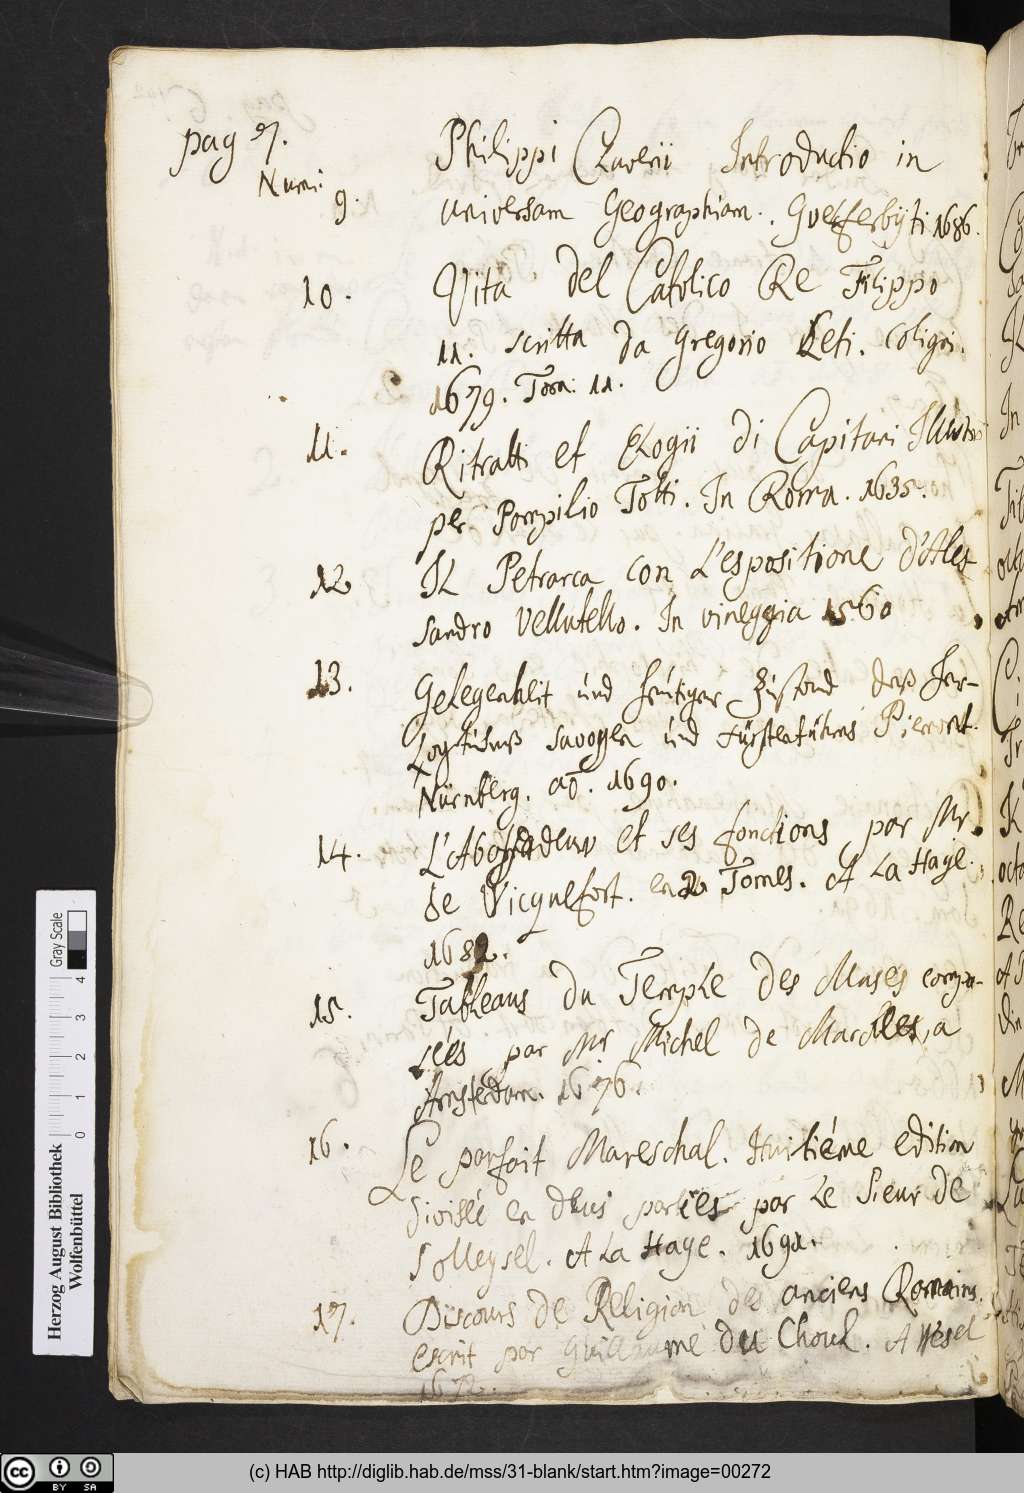 pag 7.
Num:
9.
Philippi Cluverii Introductio in
universam Geographiam. Guelferbÿti 1686.
10.
Vita del Catolico Re Filippo
11. scritta da Gregorio Leti. Coligni.
1679. Tom: 11.
11.
Ritratti et Elogii di Capitani Illustri
per Pompilio Totti. In Roma. 1635.
12
Il Petrarca con L'espositione d'Ales
sandro Vellutello. In vineggia 1560
13.
Gelegenheit und heutiger Zustand deß Her-
zogthumß Savoyen und Fürstenthums Piemont.
Nürnberg. ao. 1690.
14.
L'Abassadeur et ses fonctions par Mr.
de Vicquefort. en 2 Tomes. A La Haye.
1682.
15.
Tableaus du Temple des Muses compo-
sées par Mr Michel de Marolles, a
Amsterdam. 1676.
16.
Le parfait Mareschal. Huitiéme edition
divisée en deus parties par Le Sieur de
Solleysel. A La Haye. 1691.
17.
Discours de Religion des anciens Romains.
escrit par Guillaume du Choul. A Wesel
1672.
Herzog August Bibliothek
Wolfenbüttel
0 1 2 3 4
Gray Scale
(c) HAB http://diglib.hab.de/mss/31-blank/start.htm?image=00272
cc BY SA